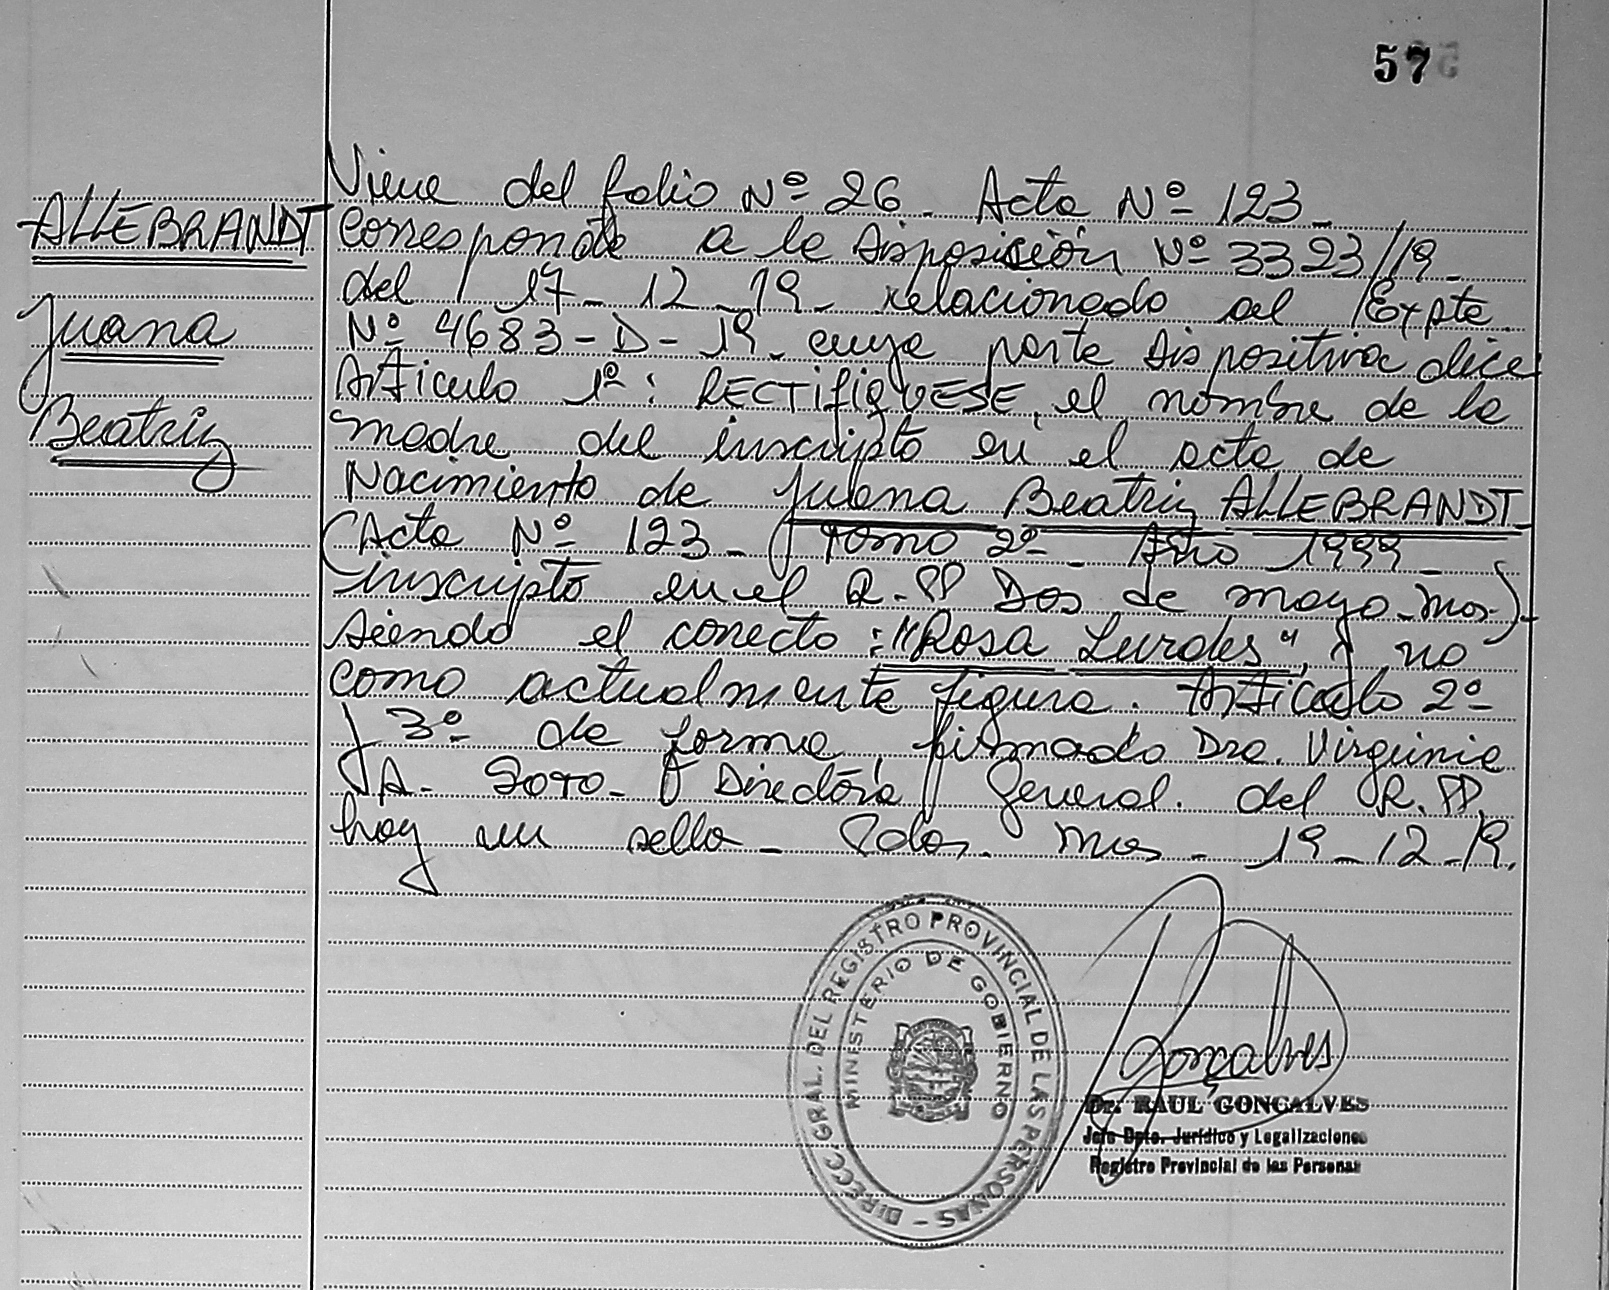 57
ALLEBRANDT
Juana
Beatriz
Viene del folio Nº 26. Acta Nº 123-
Corresponde a la Disposición Nº 3323/19-
del 17-12-19- relacionado al Expte.
Nº 4683-D-19- cuya parte dispositiva dice
Articulo 1º: RECTIFIQUESE, el nombre de la
madre del inscripto en el acta de
Nacimiento de Juana Beatriz ALLEBRANDT-
(Acta Nº 123- Tomo 2º- Año 1999-
inscripto en el R.PP Dos de mayo-Mns-)
siendo el correcto: "Rosa Lurdes", y no
como actualmente figura. Articulo 2º
y 3º de forma, firmado Dra. Virginia
A. Soto- Directora General. del R.PP.
hay un sello- Pdas. Mns- 19-12-19.
DIRECC. GRAL. DEL REGISTRO PROVINCIAL DE LAS PERSONAS -
MINISTERIO DE GOBIERNO
Gonçalves
Dr. RAUL GONÇALVES
Jefe Dpto. Jurídico y Legalizaciones
Registro Provincial de las Personas